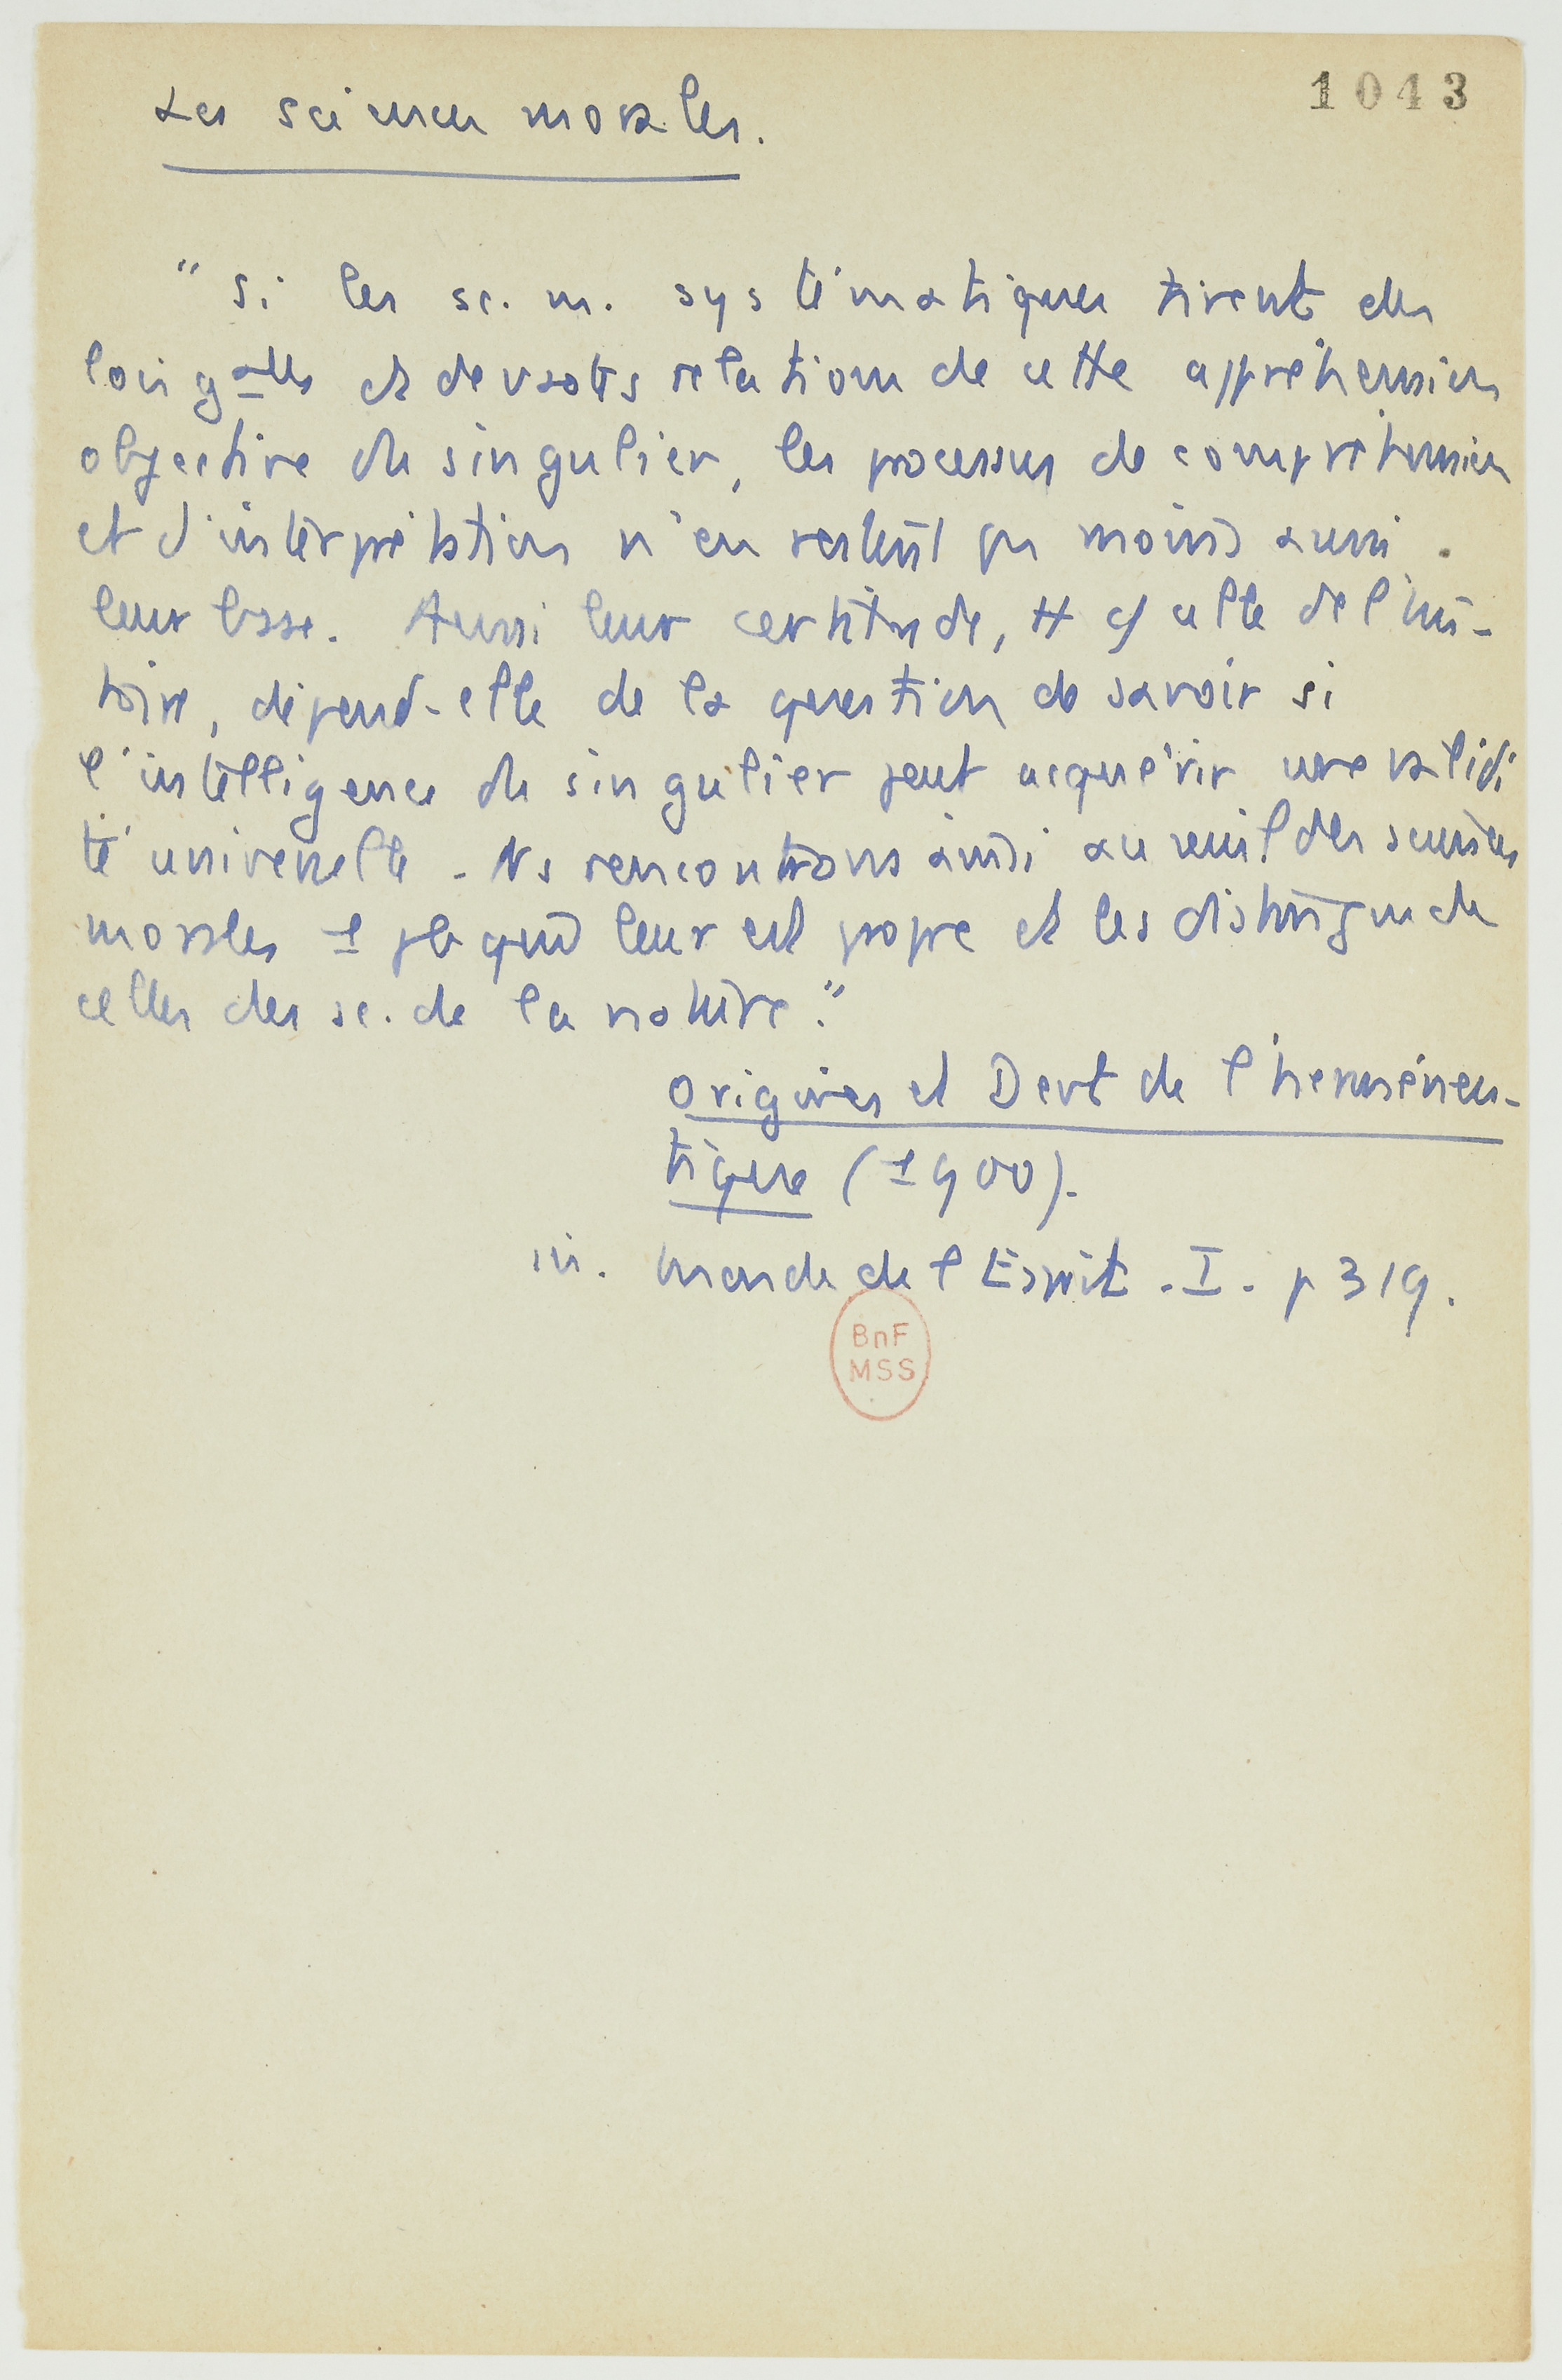 1043
Les sciences morales.
"Si les sc. m. systématiques tirent des
lois gales et de vastes relations de cette appréhension
objective du singulier, les processus de compréhension
et d'interprétation n'en restent pas moins aussi
leur base. Aussi leur certitude, tt c/ celle de l'his-
toire, dépend-elle de la question de savoir si
l'intelligence du singulier peut acquérir une validi
té universelle. Ns rencontrons ainsi au seuil des sciences
morales 1 pb qui leur est propre et les distingue de
celles des sc. de la nature."
Origines et Devt de l'herméneu-
tique (1900).
in. Monde de l'Esprit. I. p 319.
BnF
MSS